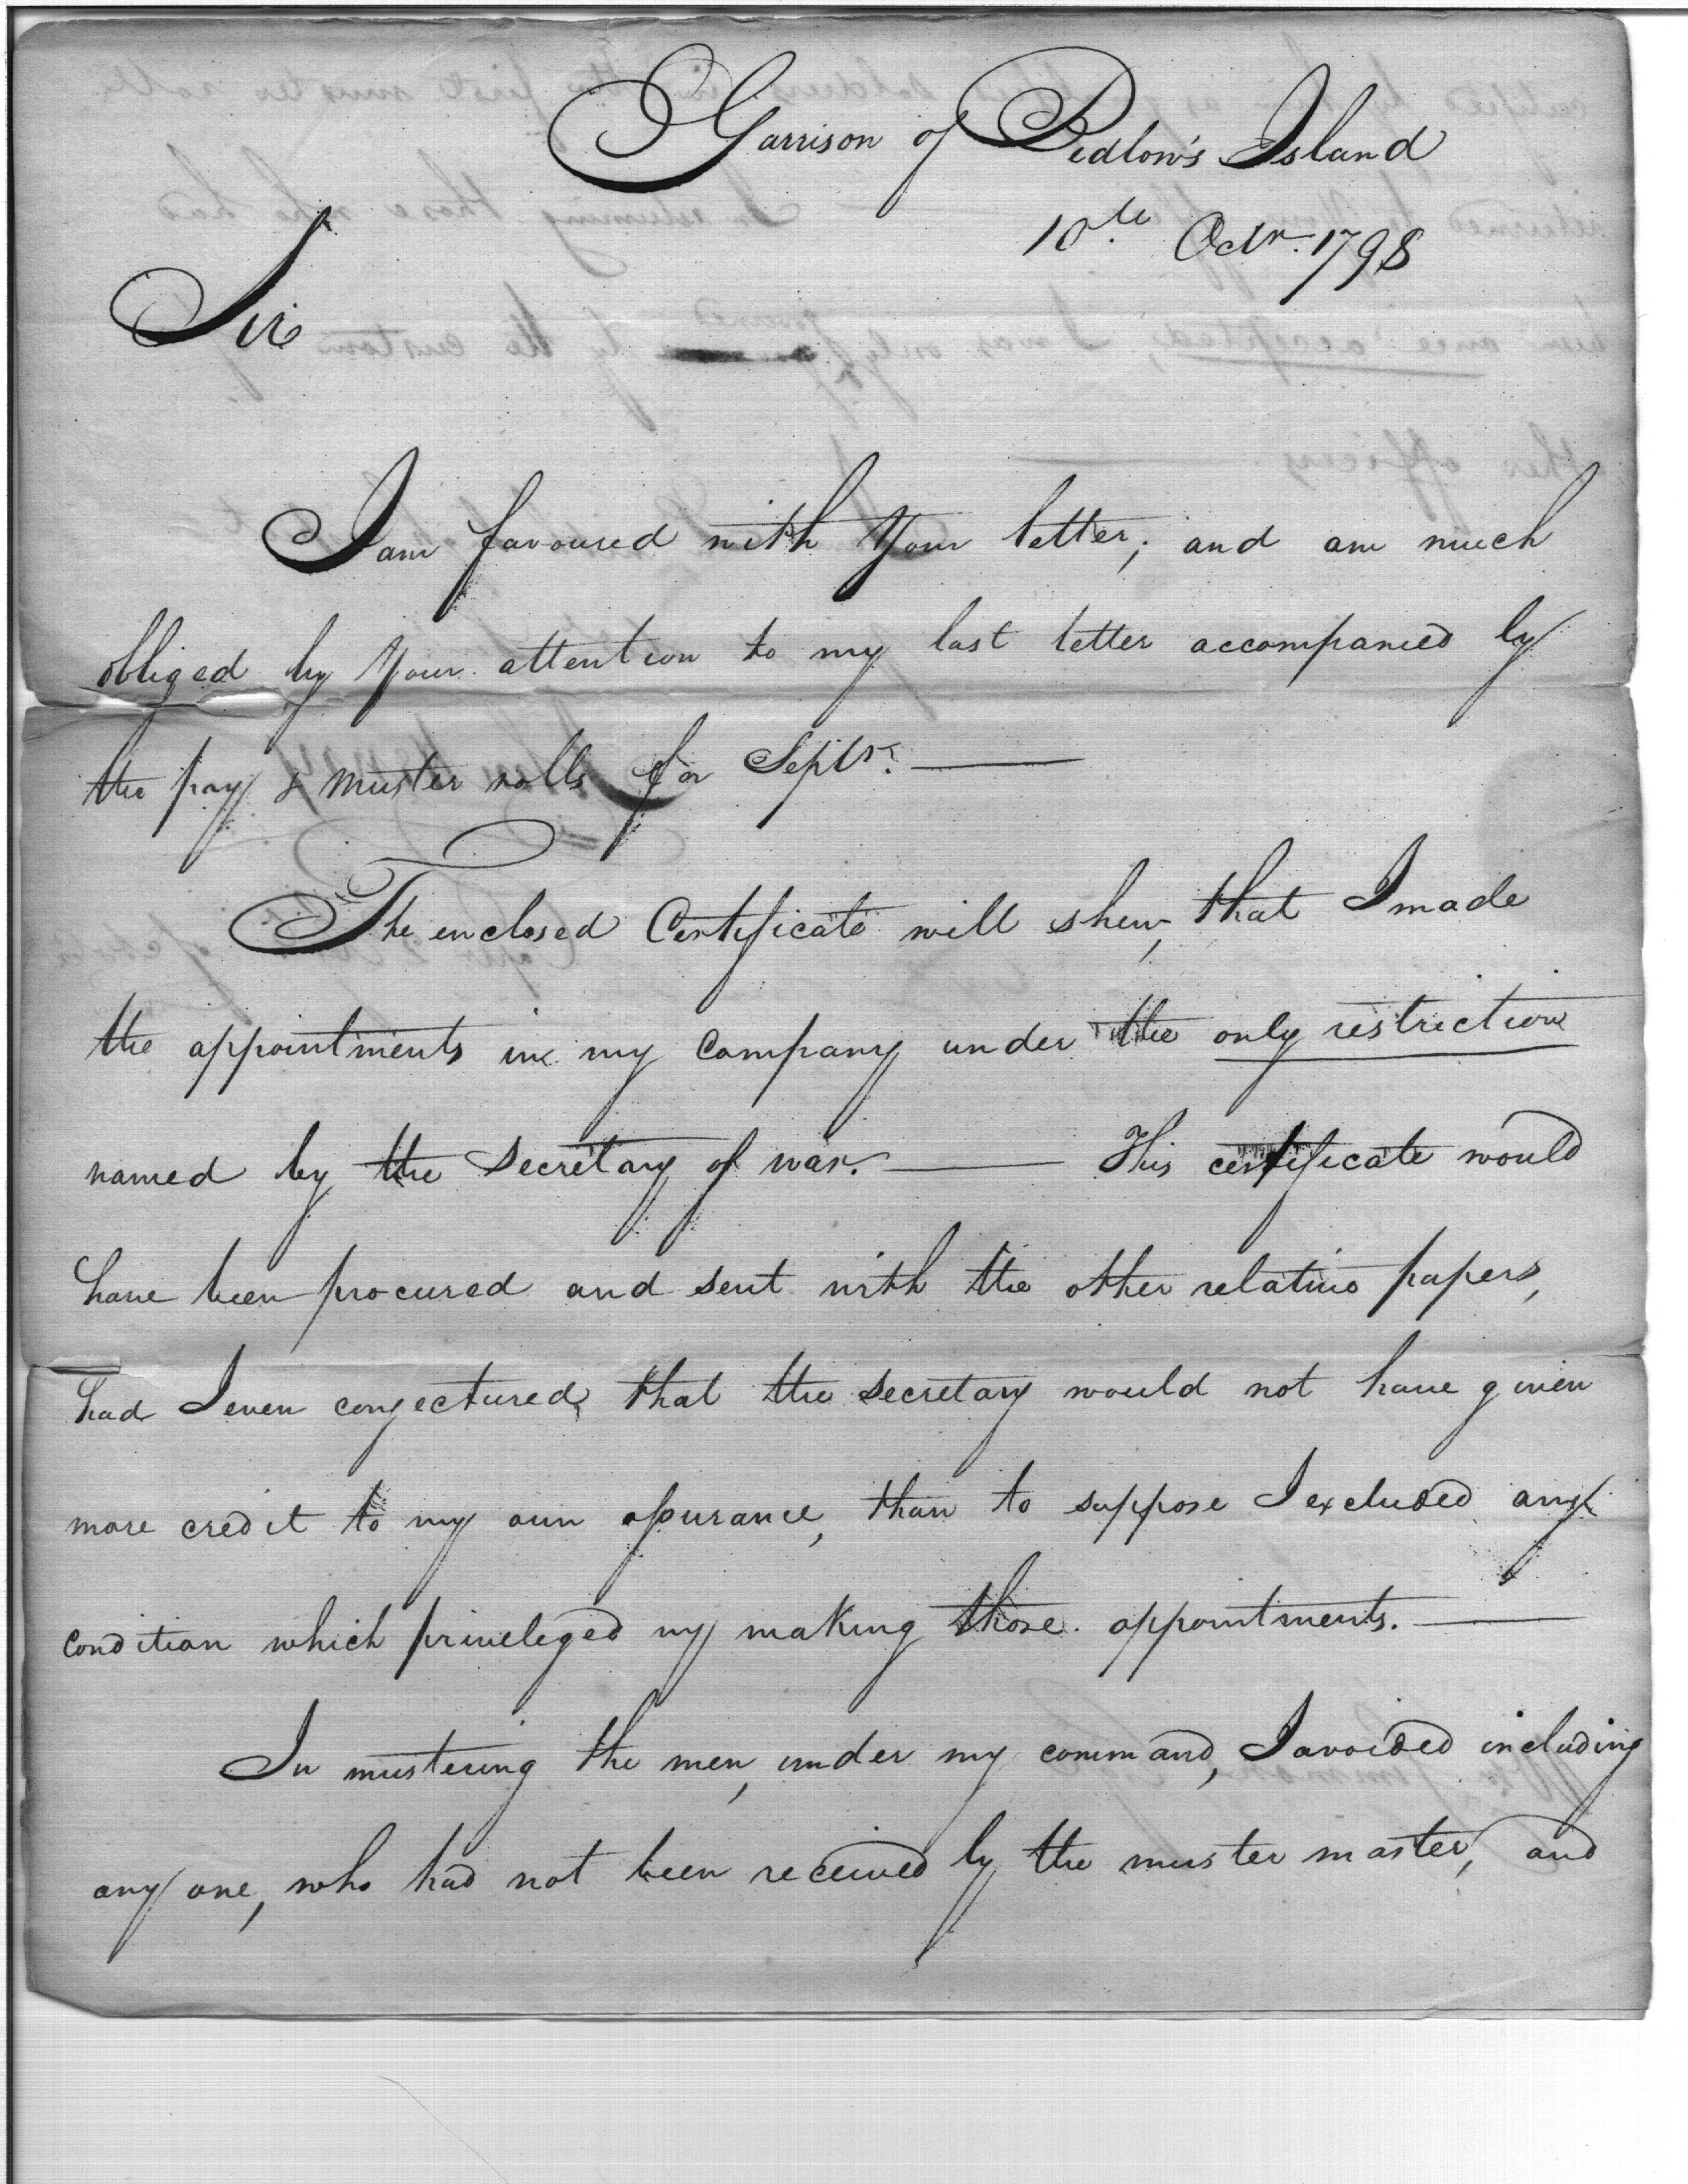 Garrison of Bedlow's Island
10th. Octr. 1798
Sir
I am favoured with Your letter; and am much
obliged by Your attention to my last letter accompanied by
the pay & muster rolls for Septr. —
The enclosed Certificate will shew, that I made
the appointments in my Company under the only restriction
named by the Secretary of war. — This certificate would
have been procured and sent with the other relative papers,
had I even conjectured that the Secretary would not have given
more credit to my own assurance, than to suppose I excluded any
condition which priveleged my making those appointments. —
In mustering the men, under my command, I avoided including
any one, who had not been received by the muster master, and